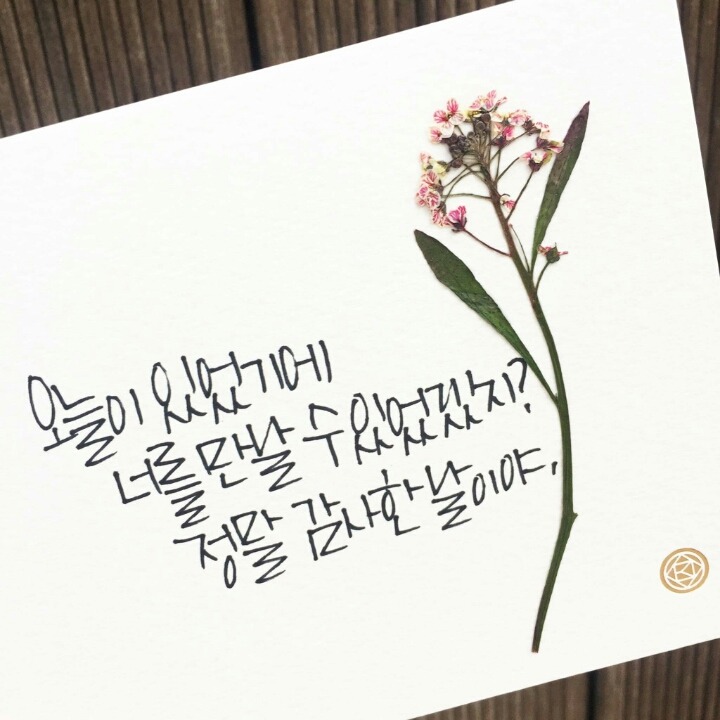 오늘이 있었기에
너를 만날 수 있었겠지?
정말 감사한 날이야.